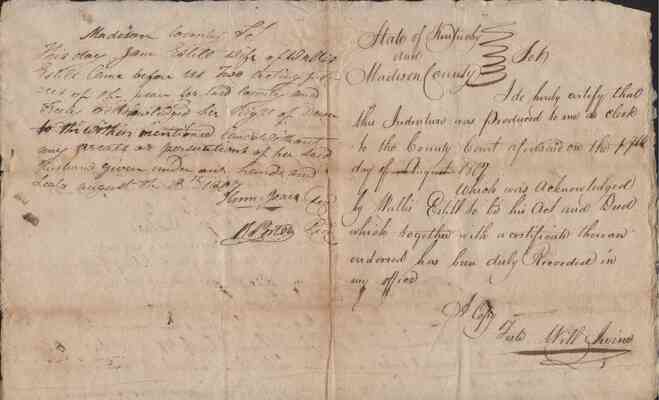 Madison County Sct
This day Jane Estill wife of Wallis
Estill Came before us Two Acting
of the peace for said County and
freely acknowledged her Right of Dower
to the within mentioned Land without
any threats or persuations of her said
Husband given under our hands and
Seals august the 1807
State of Kentucky
and
Madison County
Sct
I do hereby certify that
this Indenture was produced to me as clerk
to the County Court aforesaid on the
day of August 1807
Which was Acknowledged
by Wallis Estill to be his Act and Deed
which together with a certificate thereon
endorsed has been duly Recorded in
my office
A Copy
Teste Will Irvine